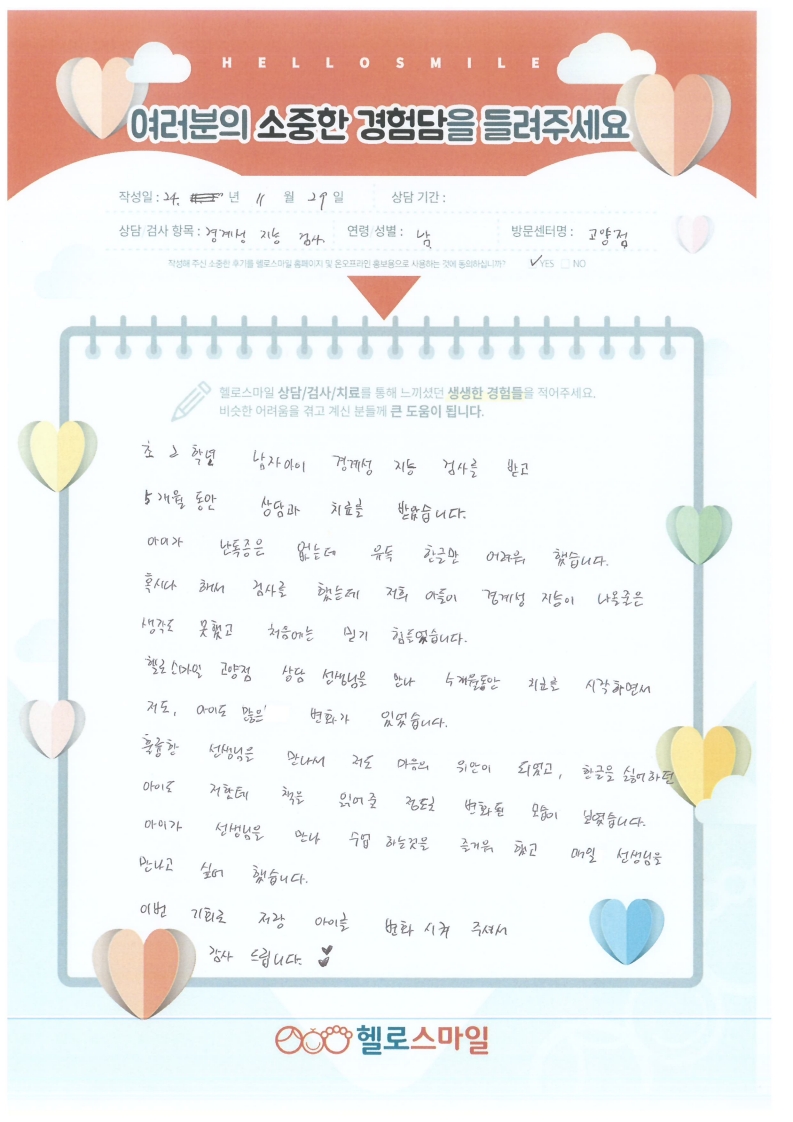 HELLOSMILE
여러분의 소중한 경험담을 들려주세요
작성일 : 24. 년 11 월 29 일 상담 기간 :
상담 검사 항목 : 경계성 지능 검사 연령 성별 : 남 방문센터명 : 고양점
작성해 주신 소중한 후기를 헬로스마일 홈페이지 및 온오프라인 홍보용으로 사용하는 것에 동의하십니까? ✓YES NO
헬로스마일 상담/검사/치료를 통해 느끼셨던 생생한 경험들을 적어주세요.
비슷한 어려움을 겪고 계신 분들께 큰 도움이 됩니다.
초 2 학년 남자아이 경계성 지능 검사를 받고
5개월 동안 상담과 치료를 받았습니다.
아이가 난독증은 없는데 유독 한글만 어려워 했습니다.
혹시나 해서 검사를 했는데 저희 아들이 경계성 지능이 나올줄은
생각도 못했고 처음에는 믿기 힘들었습니다.
헬로스마일 고양점 상담 선생님을 만나 5개월동안 치료를 시작하면서
저도, 아이도 많은 변화가 있었습니다.
훌륭한 선생님을 만나서 저도 마음의 위안이 되었고, 한글을 싫어하던
아이도 저한테 책을 읽어줄 정도로 변화된 모습이 보였습니다.
아이가 선생님을 만나 수업 하는것을 즐거워 했고 매일 선생님을
만나고 싶어 했습니다.
이번 기회로 저랑 아이를 변화 시켜 주셔서
감사 드립니다. ♥
헬로스마일